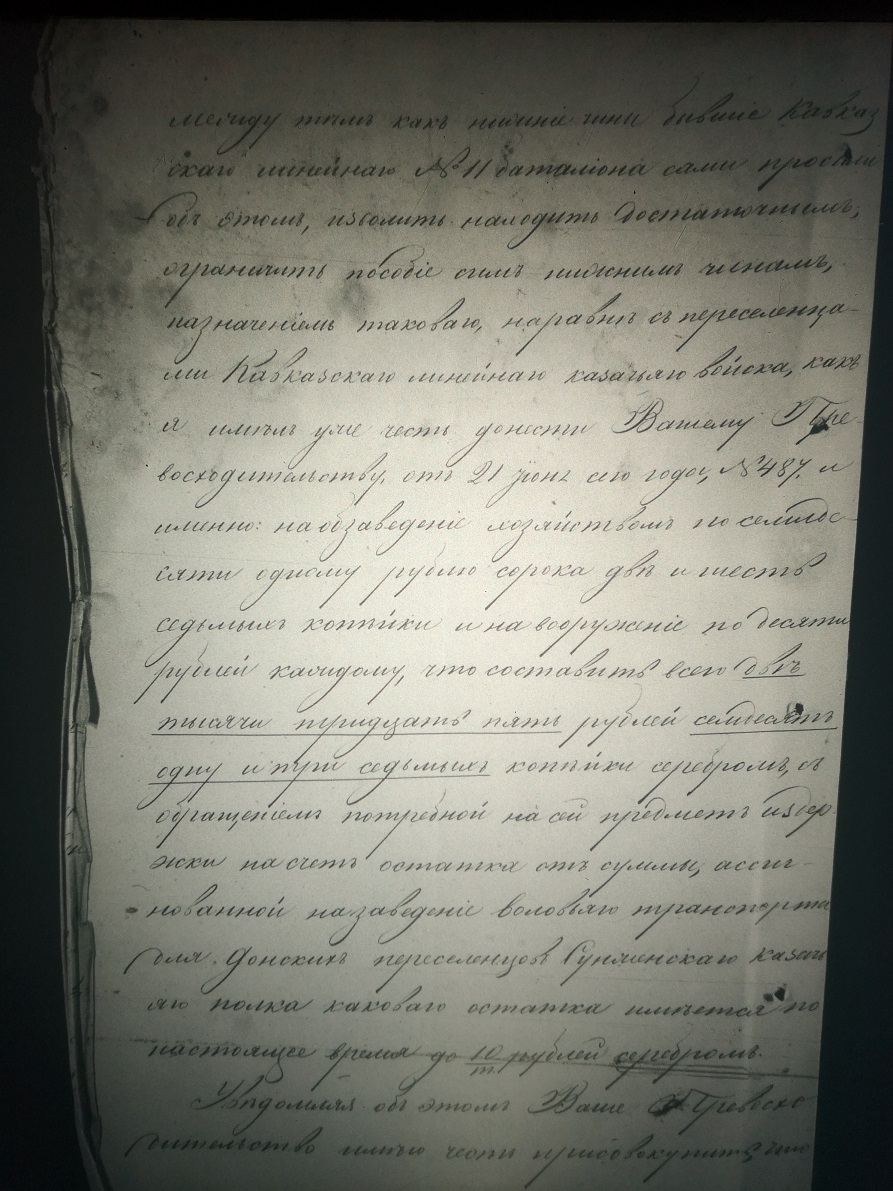 между тѣмъ какъ нижніе чины бывшіе Кавказ
скаго линейнаго № 11 баталіона сами просили
объ этомъ, изволитъ находить достаточнымъ,
ограничить пособіе симъ нижнимъ чинамъ,
назначеніемъ таковаго, наравнѣ съ переселенца-
ми Кавказскаго линейнаго казачьяго войска, какъ
я имѣлъ уже честь донести Вашему Пре-
восходительству, отъ 21 Іюня сего года, № 487. и
именно: на обзаведеніе хозяйствомъ по семиде-
сяти одному рублю сорока двѣ и шесть
седьмыхъ копѣйки и на вооруженіе по десяти
рублей каждому, что составитъ всего двѣ
тысячи тридцать пять рублей семдесятъ
одну и три седьмыхъ копѣйки серебромъ, съ
обращеніемъ потребной на сей предметъ издер-
жки на счетъ остатка отъ суммы, ассиг-
нованной на заведеніе воловьяго транспорта
для Донскихъ переселенцовъ Сунженскаго казачь
яго полка каковаго остатка имѣется по
настоящее время до 10 т. рублей серебромъ.
Увѣдомляя объ этомъ Ваше Превосхо
дительство имѣю честь присовокупить, что